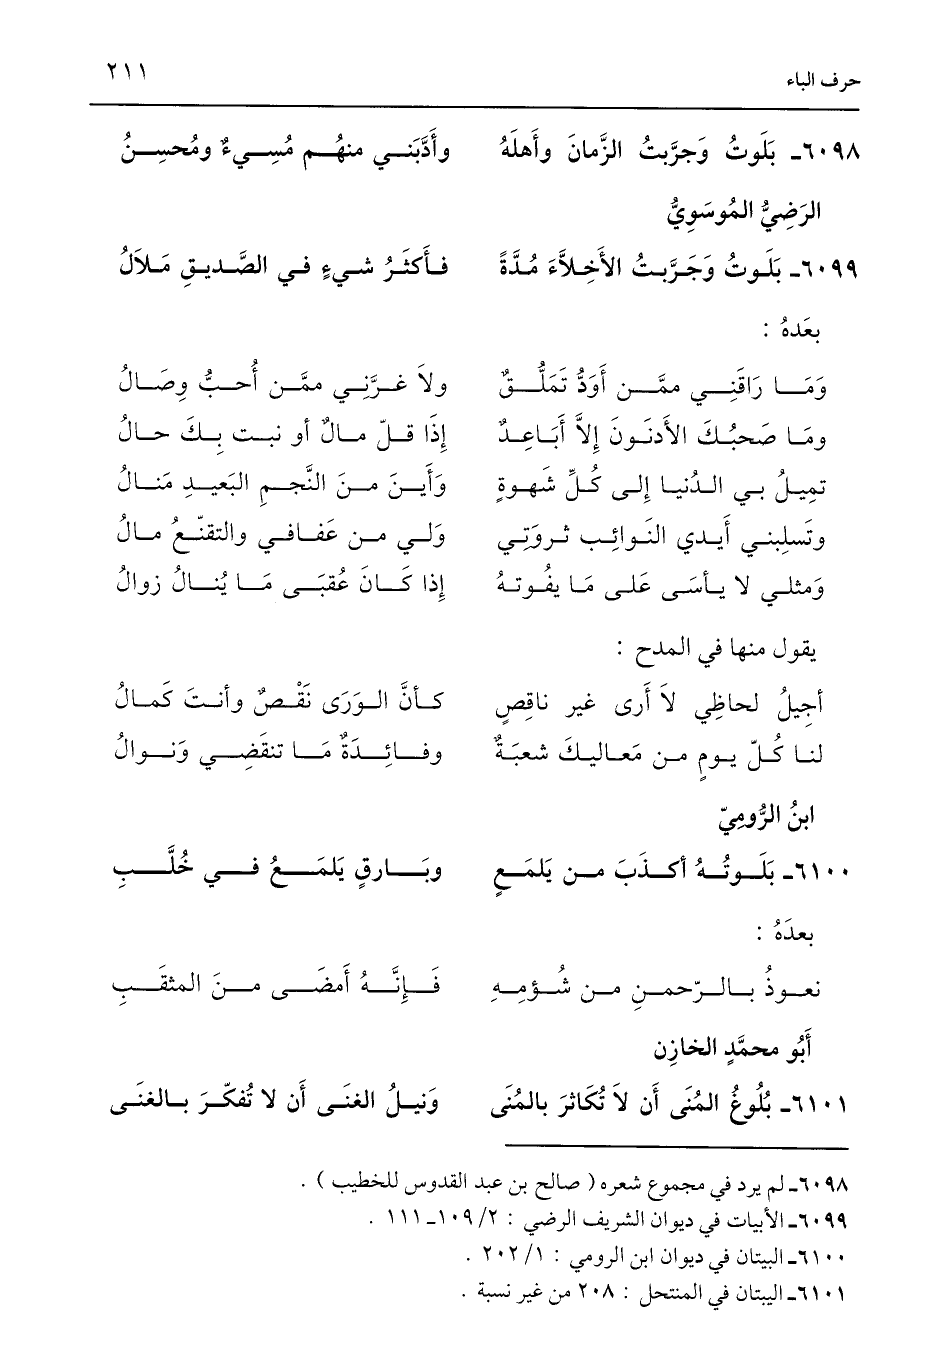 حرف الباء ٢١١
٦٠٩٨ـ بَلَوتُ وَجرَّبتُ الزَّمانَ وأهلَهُ وأدَّبَني منهُم مُسِيءٌ ومُحسِنُ
الرَضِيُّ المُوسَوِيُّ
٦٠٩٩ـ بَلَوتُ وَجَرَّبتُ الأَخِلاَّءَ مُدَّةً فأكثَرُ شيءٍ في الصَّديقِ مَلاَلُ
بعَدهُ :
وَمَا رَاقَنِي ممَّن أَوَدُّ تَملُّقٌ ولاَ غرَّني ممَّن أُحبُّ وِصَالُ
ومَا صَحبُكَ الأدنَونَ إلاَّ أَبَاعِدٌ إذَا قلّ مالٌ أو نبت بكَ حالُ
تميلُ بي الدُنيا إلى كُلِّ شهوةٍ وَأينَ منَ النَّجمِ البَعيدِ مَنالُ
وتَسلبني أيدي النَوائبِ ثروَتي وَلي من عَفافي والتقنّعُ مالُ
وَمثلي لا يأسَى عَلى مَا يفُوتهُ إذا كَانَ عُقبَى مَا يُنالُ زوالُ
يقول منها في المدح :
أجيلُ لحاظِي لاَ أَرى غير ناقصٍ كأنَّ الوَرَى نَقْصٌ وأنتَ كَمالُ
لنا كُلّ يومٍ من مَعاليكَ شعبَةٌ وفائدَةٌ مَا تنقَضِي وَنوالُ
ابنُ الرُّومِيّ
٦١٠٠ـ بَلَوتُهُ أكذَبَ من يَلمَعٍ وبَارقٍ يَلمَعُ في خُلَّبِ
بعدَهُ :
نعوذُ بالرّحمنِ من شُؤمِهِ فَإنَّهُ أمضَى منَ المثقَبِ
أَبُو محمَّدٍ الخازِن
٦١٠١ـ بُلُوغُ المُنَى أن لاَ تُكَاثرَ بالمُنَى وَنيلُ الغنَى أَن لا تُفكّرَ بالغنَى
٦٠٩٨ـ لم يرد في مجموع شعره ( صالح بن عبد القدوس للخطيب ) .
٦٠٩٩ـ الأبيات في ديوان الشريف الرضي : ٢/ ١٠٩ـ ١١١ .
٦١٠٠ـ البيتان في ديوان ابن الرومي : ١/ ٢٠٢ .
٦١٠١ـ البيتان في المنتحل : ٢٠٨ من غير نسبة .